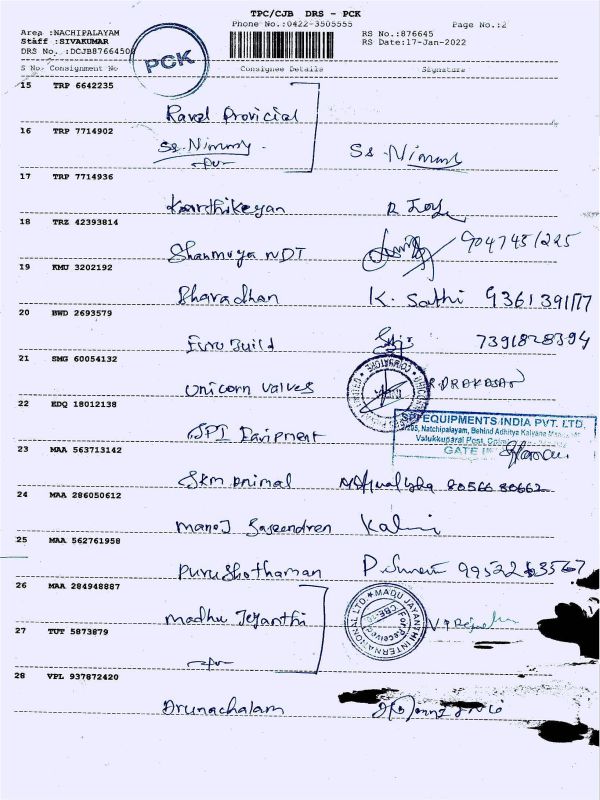 TPC/CJB DRS - PCK
Phone No.:0422-3505555
Page No.:2
Area :NACHIPALAYAM
Staff :SIVAKUMAR
DRS No. :DCJB8766450
PCK
RS No.:876645
RS Date:17-Jan-2022
S No. Consignment No Consignee Details Signature
15 TRP 6642235
Ravel Provicial
16 TRP 7714902
Ss. Nimmy Ss. Nimmy
17 TRP 7714936
Karthikeyan
18 TRZ 42393814
Shanmuga NDT
19 KMU 3202192
Bharadhan K. Sathi
20 BWD 2693579
Euro Build 7391828394
21 SMG 60054132
Unicorn valves
22 EDQ 18012138
SPI Equipment
SPI EQUIPMENTS INDIA PVT. LTD.
Natchipalayam, Behind Adhitya Kalyana
Valukkuparai Post,
GATE
23 MAA 563713142
SKM Animal 80566 80662
24 MAA 286050612
Manoj Gajeendren
25 MAA 562761958
Purushothaman
26 MAA 284948887
Madhu Jeyanthi
MADU JAYANTHI INTERNATIONAL LTD.
27 TUT 5873879
28 VPL 937872420
Arunachalam